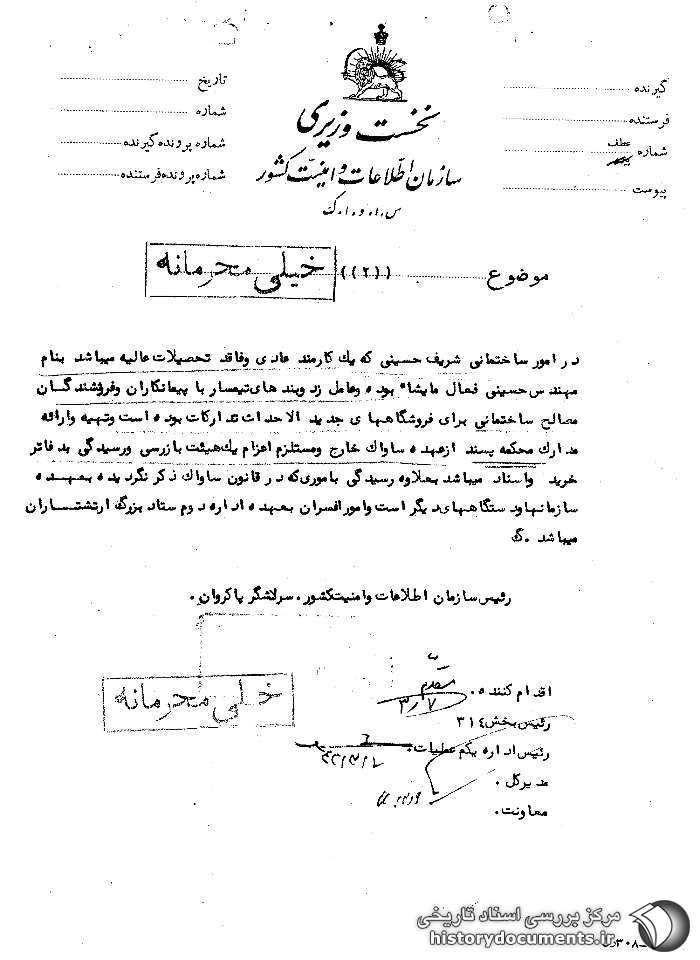 نخست وزیری
سازمان اطلاعات و امنیت کشور
س.ا.و.ا.ک
گیرنده
فرستنده
شماره عطف
پیوست
تاریخ
شماره
شماره پرونده گیرنده
شماره پرونده فرستنده
موضوع ((۲)) خیلی محرمانه
در امور ساختمانی شریف حسینی که یک کارمند عادی وفاقد تحصیلات عالیه میباشد بنام
مهندس حسینی فعال مایشاء بوده وعامل زد وبند های تیمسار با پیمانکاران وفروشندگان
مصالح ساختمانی برای فروشگاههای جدید الاحداث تدارکات بوده است وتهیه وارائه
مدارک محکمه پسند ازعهده ساواک خارج ومستلزم اعزام یک هیئت بازرسی ورسیدگی بدفاتر
خرید واسناد میباشد بعلاوه رسیدگی باموری که در قانون ساواک ذکر نگردیده بعهده
سازمانهاودستگاههای دیگر است وامور افسران بعهده اداره دوم ستاد بزرگ ارتشتاران
میباشد . گ
رئیس سازمان اطلاعات وامنیت کشور . سرلشگر پاکروان .
خیلی محرمانه
اقدام کننده . مقدم
۳/۷
رئیس بخش ۳۱٤
رئیس اداره یکم عملیات .
مدیرکل .
معاونت .
مرکز بررسی اسناد تاریخی
historydocuments.ir